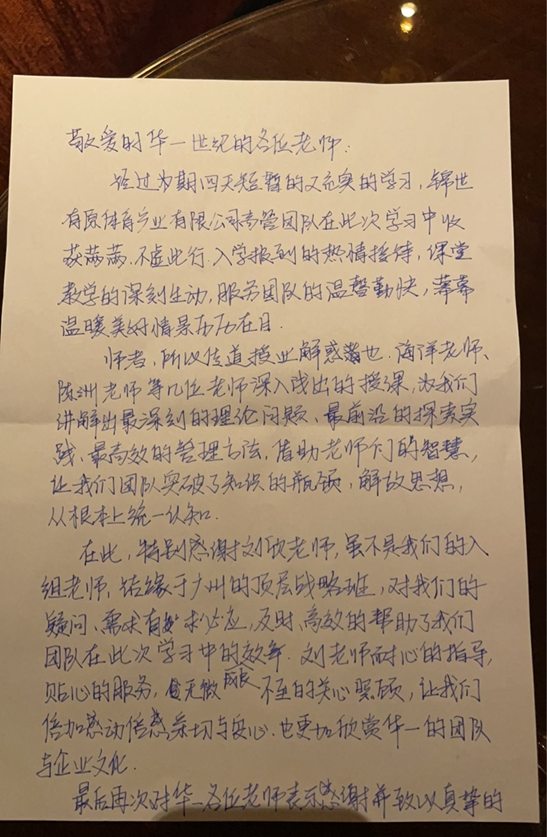 敬爱的华一世纪的各位老师:
经过为期四天短暂的又充实的学习,锦世
有原体育产业有限公司高管团队在此次学习中收
获满满.不虚此行.入学报到的热情接待,课堂
教学的深刻生动,服务团队的温馨勤快,幕幕
温暖美好情景历历在目.
师者,所以传道授业解惑也.海洋老师、
陈洲老师等几位老师深入浅出的授课,为我们
讲解出最深刻的理论问题、最前沿的探索实
践、最高效的管理方法,借助老师们的智慧,
让我们团队突破了知识的瓶颈,解放思想,
从根本上统一认知.
在此,特别感谢刘欣老师,虽不是我们的入
组老师,结缘于广州的顶层战略班,对我们的
疑问、需求有求必应,及时、高效的帮助了我们
团队在此次学习中的效率.刘老师耐心的指导,
贴心的服务,无微不至的关心照顾,让我们
倍加感动倍感亲切与安心.也更加欣赏华一的团队
与企业文化.
最后再次对华一各位老师表示感谢并致以真挚的